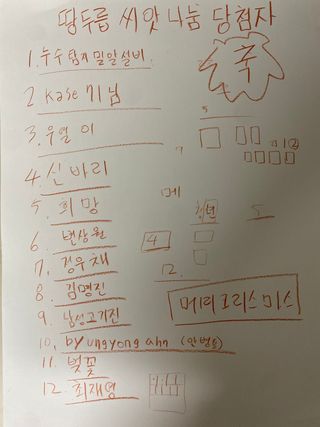 땅두릅 씨앗 나눔 당첨자
축
1. 누수탐지 밀알설비
2 kase 기님
3. 우열이
4. 신바리
5. 희망
6. 변상원
7. 정우채
8. 김명진
9. 남성고기진
10. byungyong ahn (안변용)
11. 벚꽃
12. 최재영
메
청년
4
12.
5
메리크리스마스